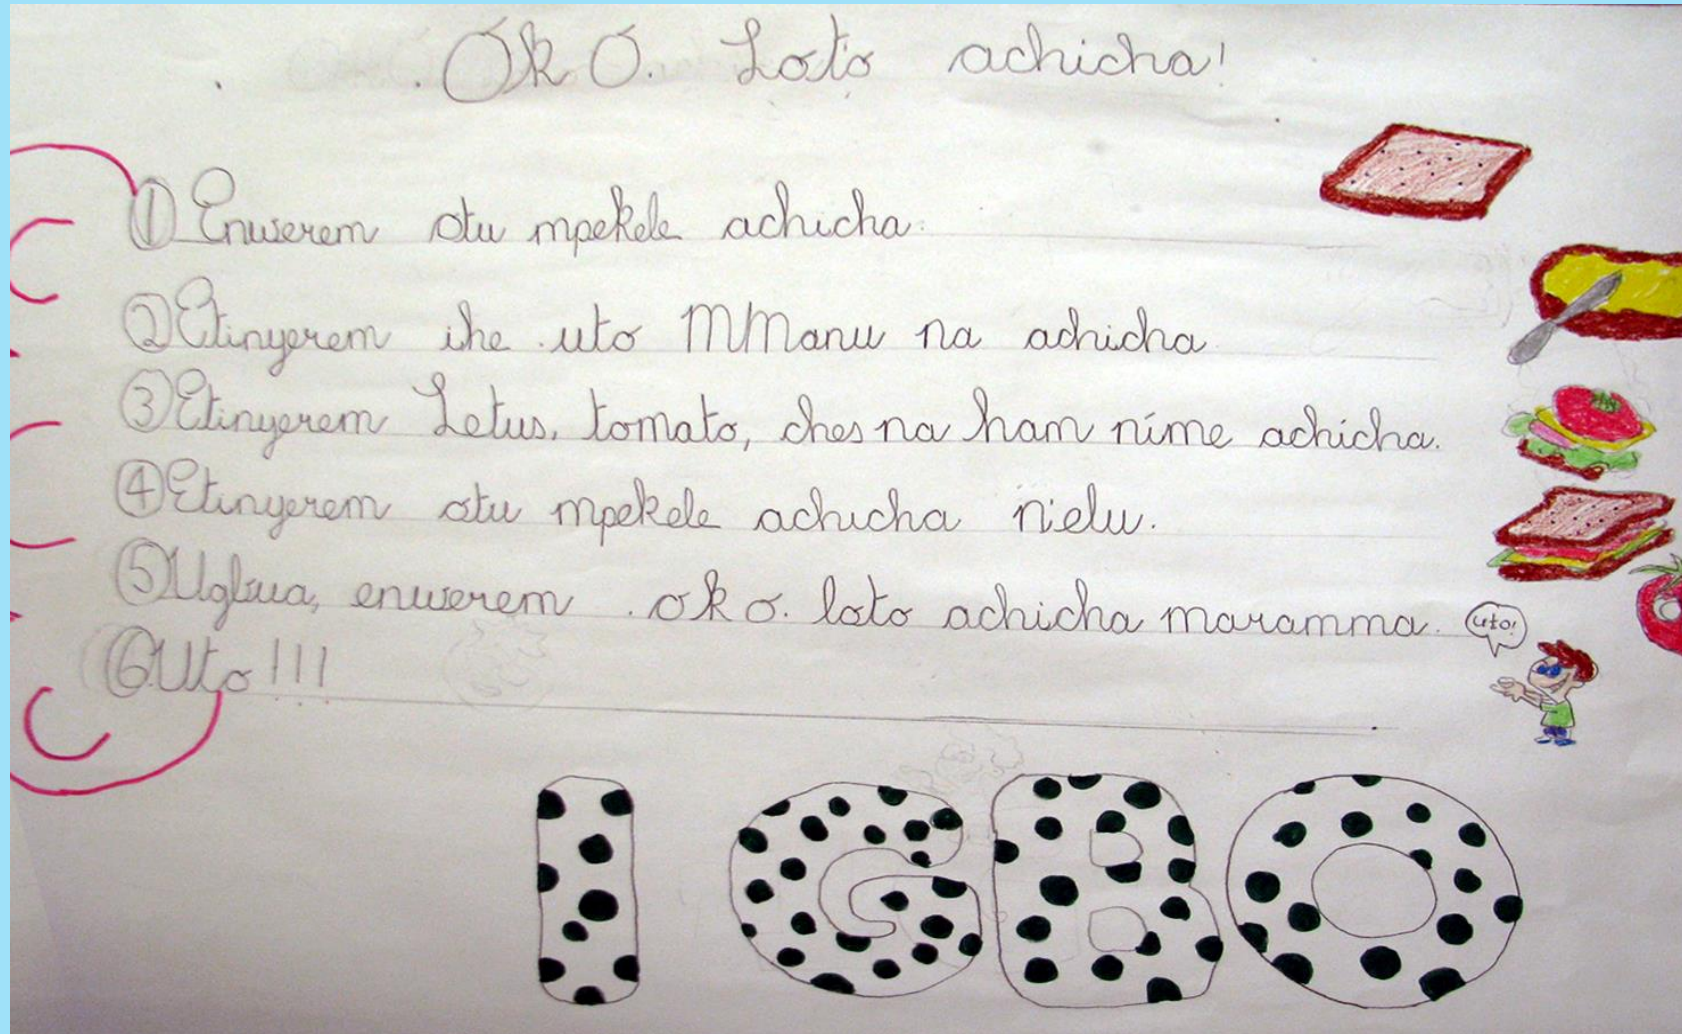 Ok O. Loto achicha!
① Enwerem otu mpekele achicha.
② Etinyerem ihe uto MManu na achicha
③ Etinyerem Letus, tomato, ches na ham nime achicha.
④ Etinyerem otu mpekele achicha n'elu.
⑤ Ugbua, enwerem ok o. loto achicha maramma.
uto!
⑥ Uto!!!
IGBO